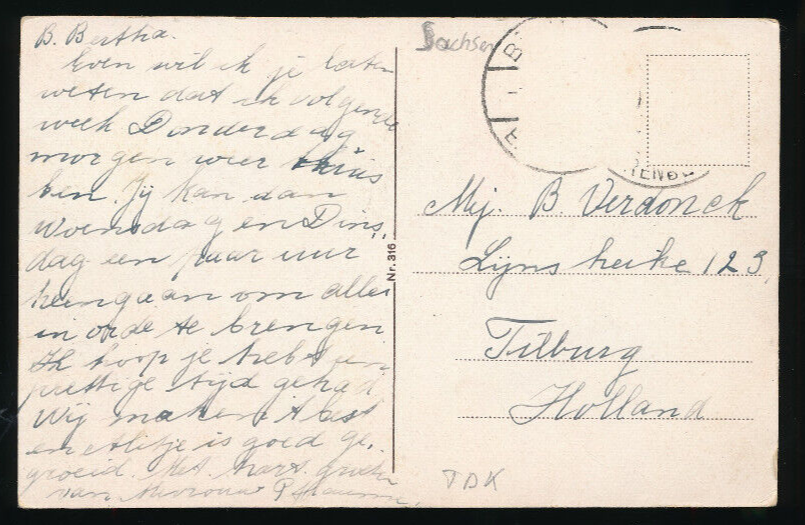 B. Bertha.
Even wil ik je laten
weten dat ik volgende
week Donderdag
morgen weer thuis
ben. Jij kan dan
Woensdag en Dins-
dag een paar uur
heengaan om alles
in orde te brengen
Ik hoop je hebt een
prettige tijd gehad
Wij maken 't best
en is goed ge-
groeid. Met hart. groeten
van Mevrouw
Sachsen
Nr. 316
Mej. B. Verdonck
Lijnsheike 123
Tilburg
Holland
TDK